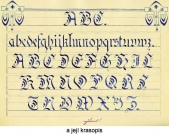 ABC.
abcdefghijklmnopqrsturwxz.
ABCDEFGHI
JKLMNOPQRS
TUVWXYZ
a její krasopis